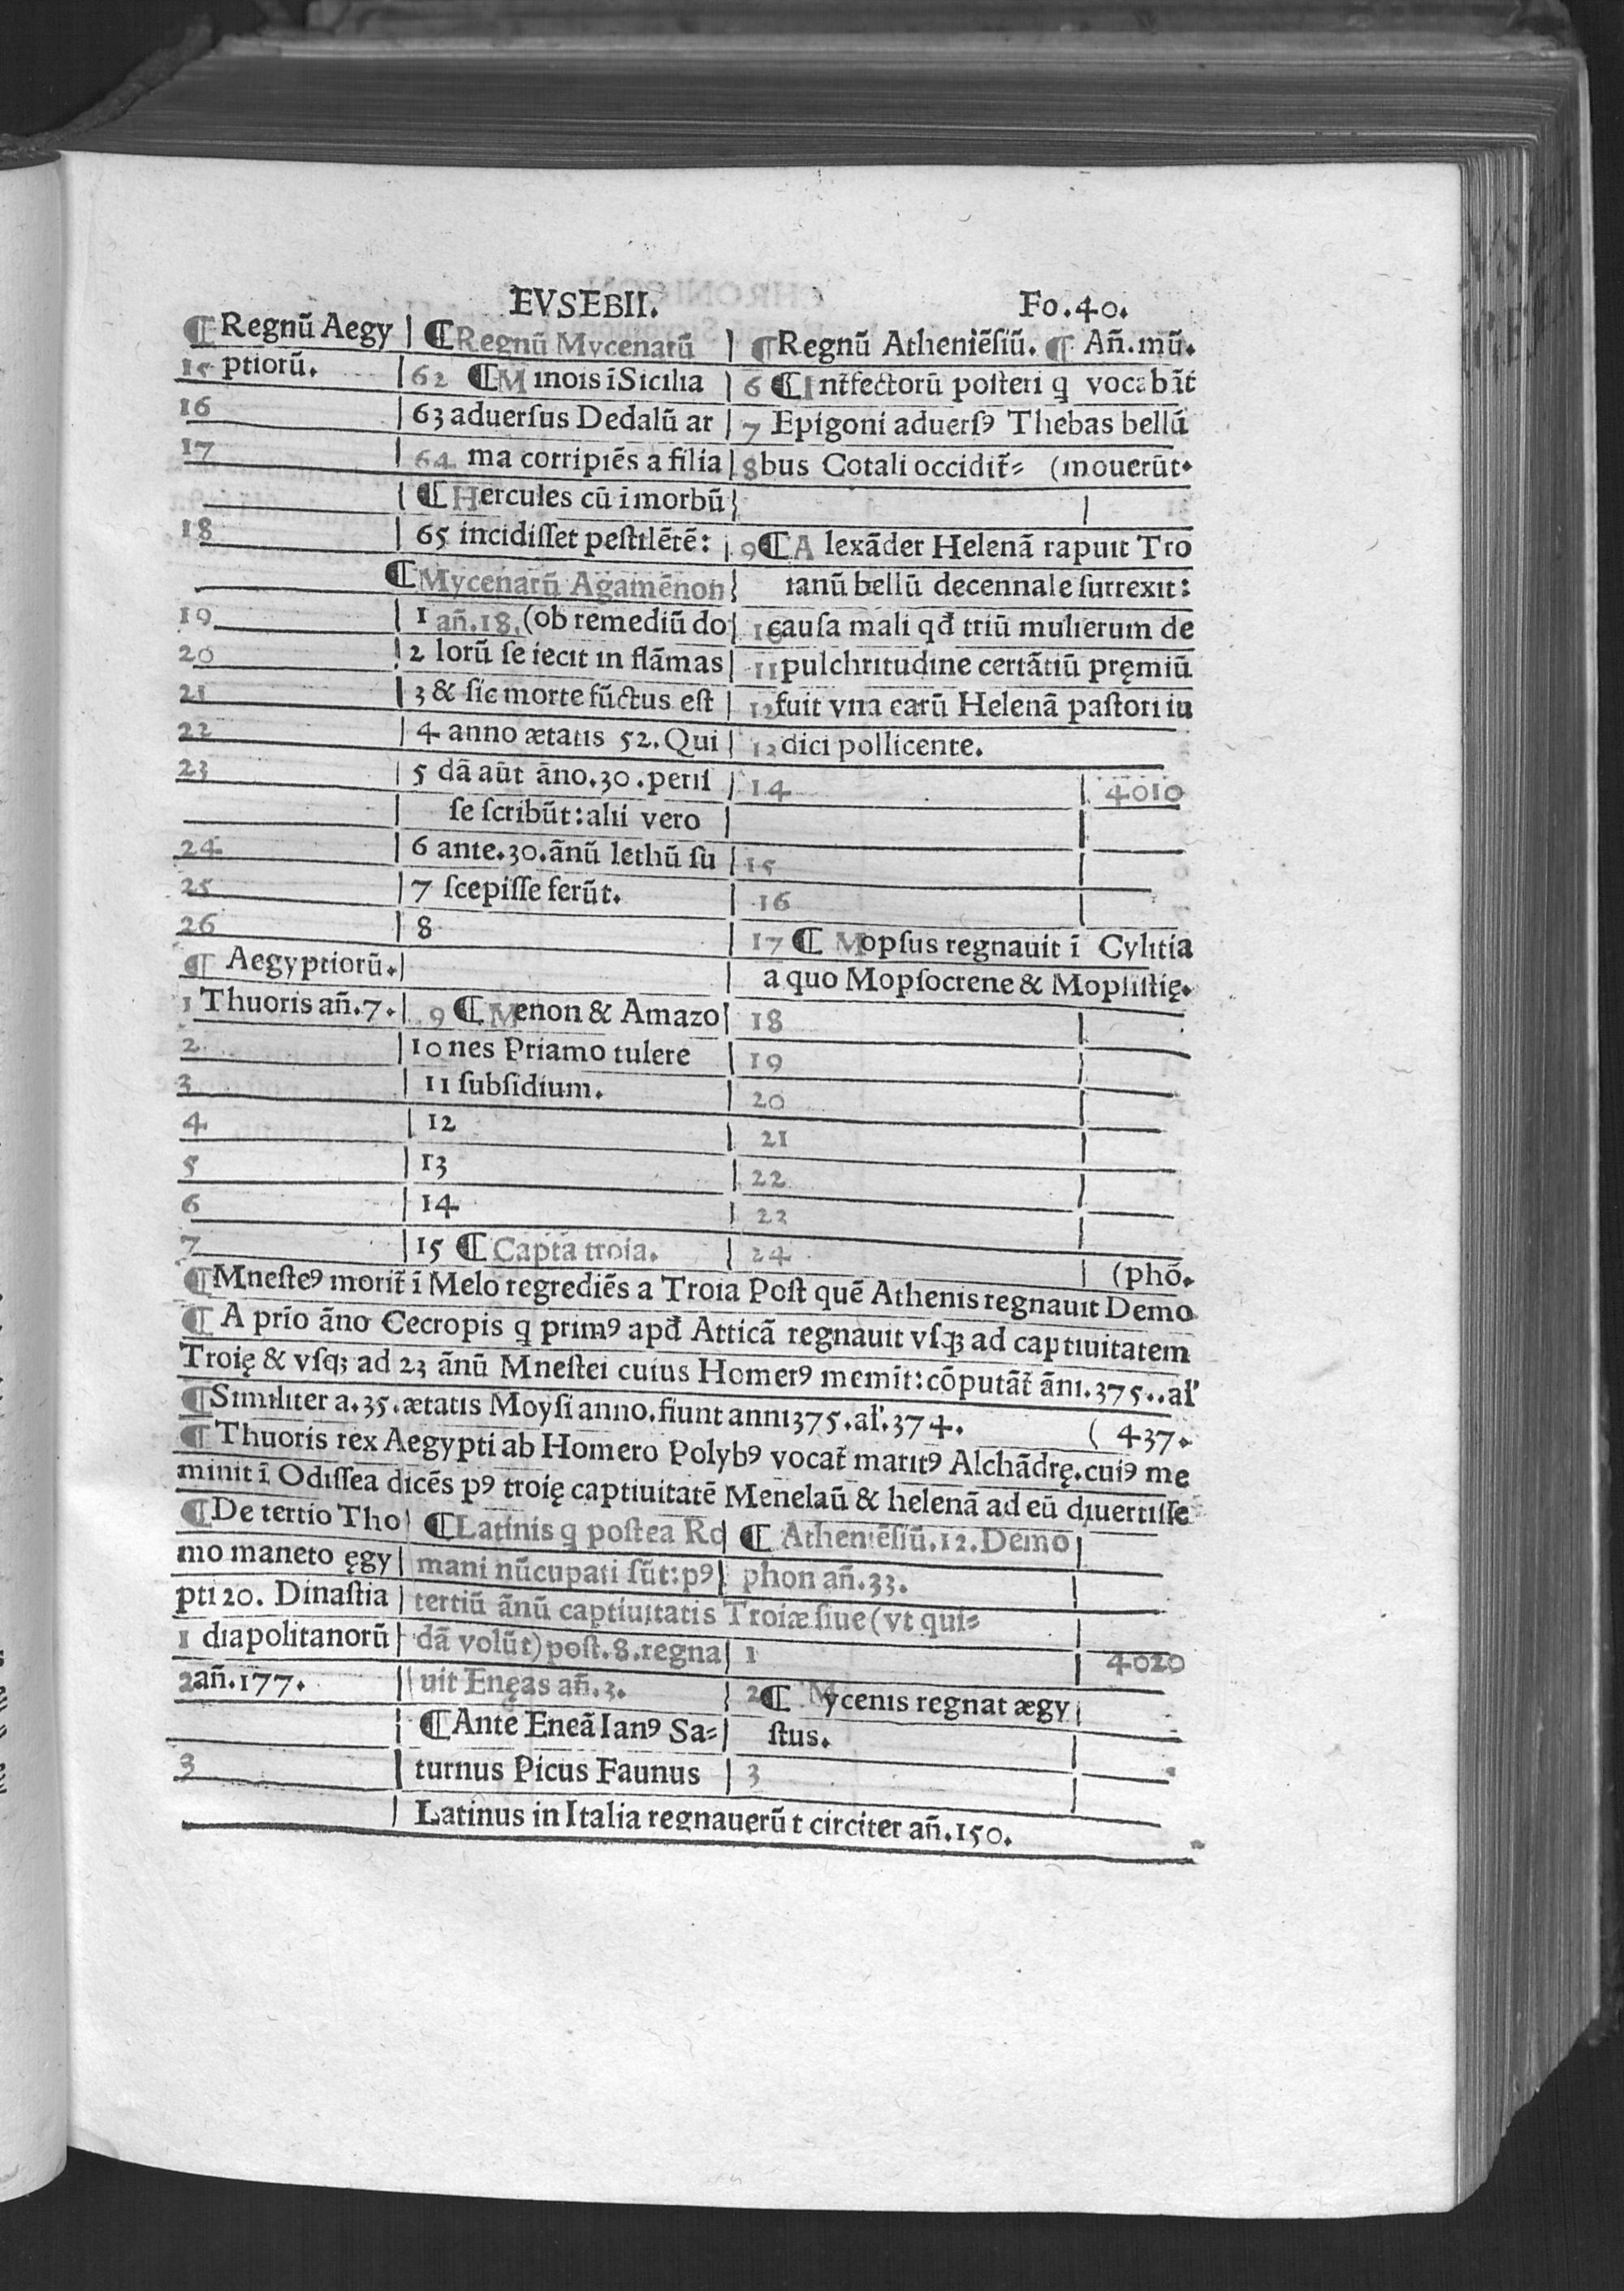 EVSEBII. Fo.40.
¶ Regnū Aegy | ¶ Regnū Mycenarū | ¶ Regnū Atheniēſiū. ¶ Añ.mū.
15 ptiorū. | 62 ¶ Minois ī Sicilia | 6 ¶ Intfectorū poſteri q vocabāt
16 | 63 aduerſus Dedalū ar | 7 Epigoni aduerſꝰ Thebas bellū
17 | 64 ma corripiēs a filia | 8 bus Cotali occidit̄⸗ (mouerūt.
| ¶ Hercules cū i morbū |
18 | 65 incidiſſet peſtilētē: | 9 ¶ Alexāder Helenā rapuit Tro
¶ Mycenarū Agamēnon | ianū bellū decennale ſurrexit:
19 | 1 añ.18. (ob remediū do | 10 cauſa mali qđ triū mulierum de
20 | 2 lorū ſe iecit in flāmas | 11 pulchritudine certātiū pręmiū
21 | 3 & ſic morte fūctus eſt | 12 fuit vna earū Helenā paſtori iu
22 | 4 anno ætatis 52. Qui | 13 dici pollicente.
23 | 5 dā aūt āno.30.periſ | 14 | 4010
| ſe ſcribūt:alii vero |
24 | 6 ante.30.ānū lethū ſu | 15
25 | 7 ſcepiſſe ferūt. | 16
26 | 8 | 17 ¶ Mopſus regnauit ī Cylitia
¶ Aegyptiorū. | | a quo Mopſocrene & Mopſiſtię.
1 Thuoris añ.7. | 9 ¶ Menon & Amazo | 18
2 | 10 nes Priamo tulere | 19
3 | 11 ſubſidium. | 20
4 | 12 | 21
5 | 13 | 22
6 | 14 | 22
7 | 15 ¶ Capta troia. | 24 | (phō.
¶ Mneſteꝰ morit̄ ī Melo regrediēs a Troia Poſt quē Athenis regnauit Demo
¶ A prīo āno Cecropis q primꝰ apđ Atticā regnauit vſqꝫ ad captiuitatem
Troię & vſqꝫ ad 23 ānū Mneſtei cuius Homerꝰ memīt:cōputāt̄ āni.375..al'
¶ Similiter a.35.ætatis Moyſi anno.fiunt anni 375.al'.374. ( 437.
¶ Thuoris rex Aegypti ab Homero Polybꝰ vocat̄ maritꝰ Alchādrę.cuiꝰ me
minit ī Odiſſea dicēs pꝰ troię captiuitatē Menelaū & helenā ad eū diuertiſſe
¶ De tertio Tho | ¶ Latinis q poſtea Ro | ¶ Atheniēſiū.12.Demo |
mo maneto ęgy | mani nūcupati ſūt:pꝰ | phon añ.33.
pti 20. Dinaſtia | tertiū ānū captiuitatis Troiæ ſiue (vt qui⸗
1 diapolitanorū | dā volūt) poſt.8.regna | 1 | 4020
2 añ.177. | uit Enęas añ.3. | 2 ¶ Mycenis regnat ægy |
| ¶ Ante Eneā Ianꝰ Sa⸗ | ſtus.
3 | turnus Picus Faunus | 3
| Latinus in Italia regnauerūt circiter añ.150.